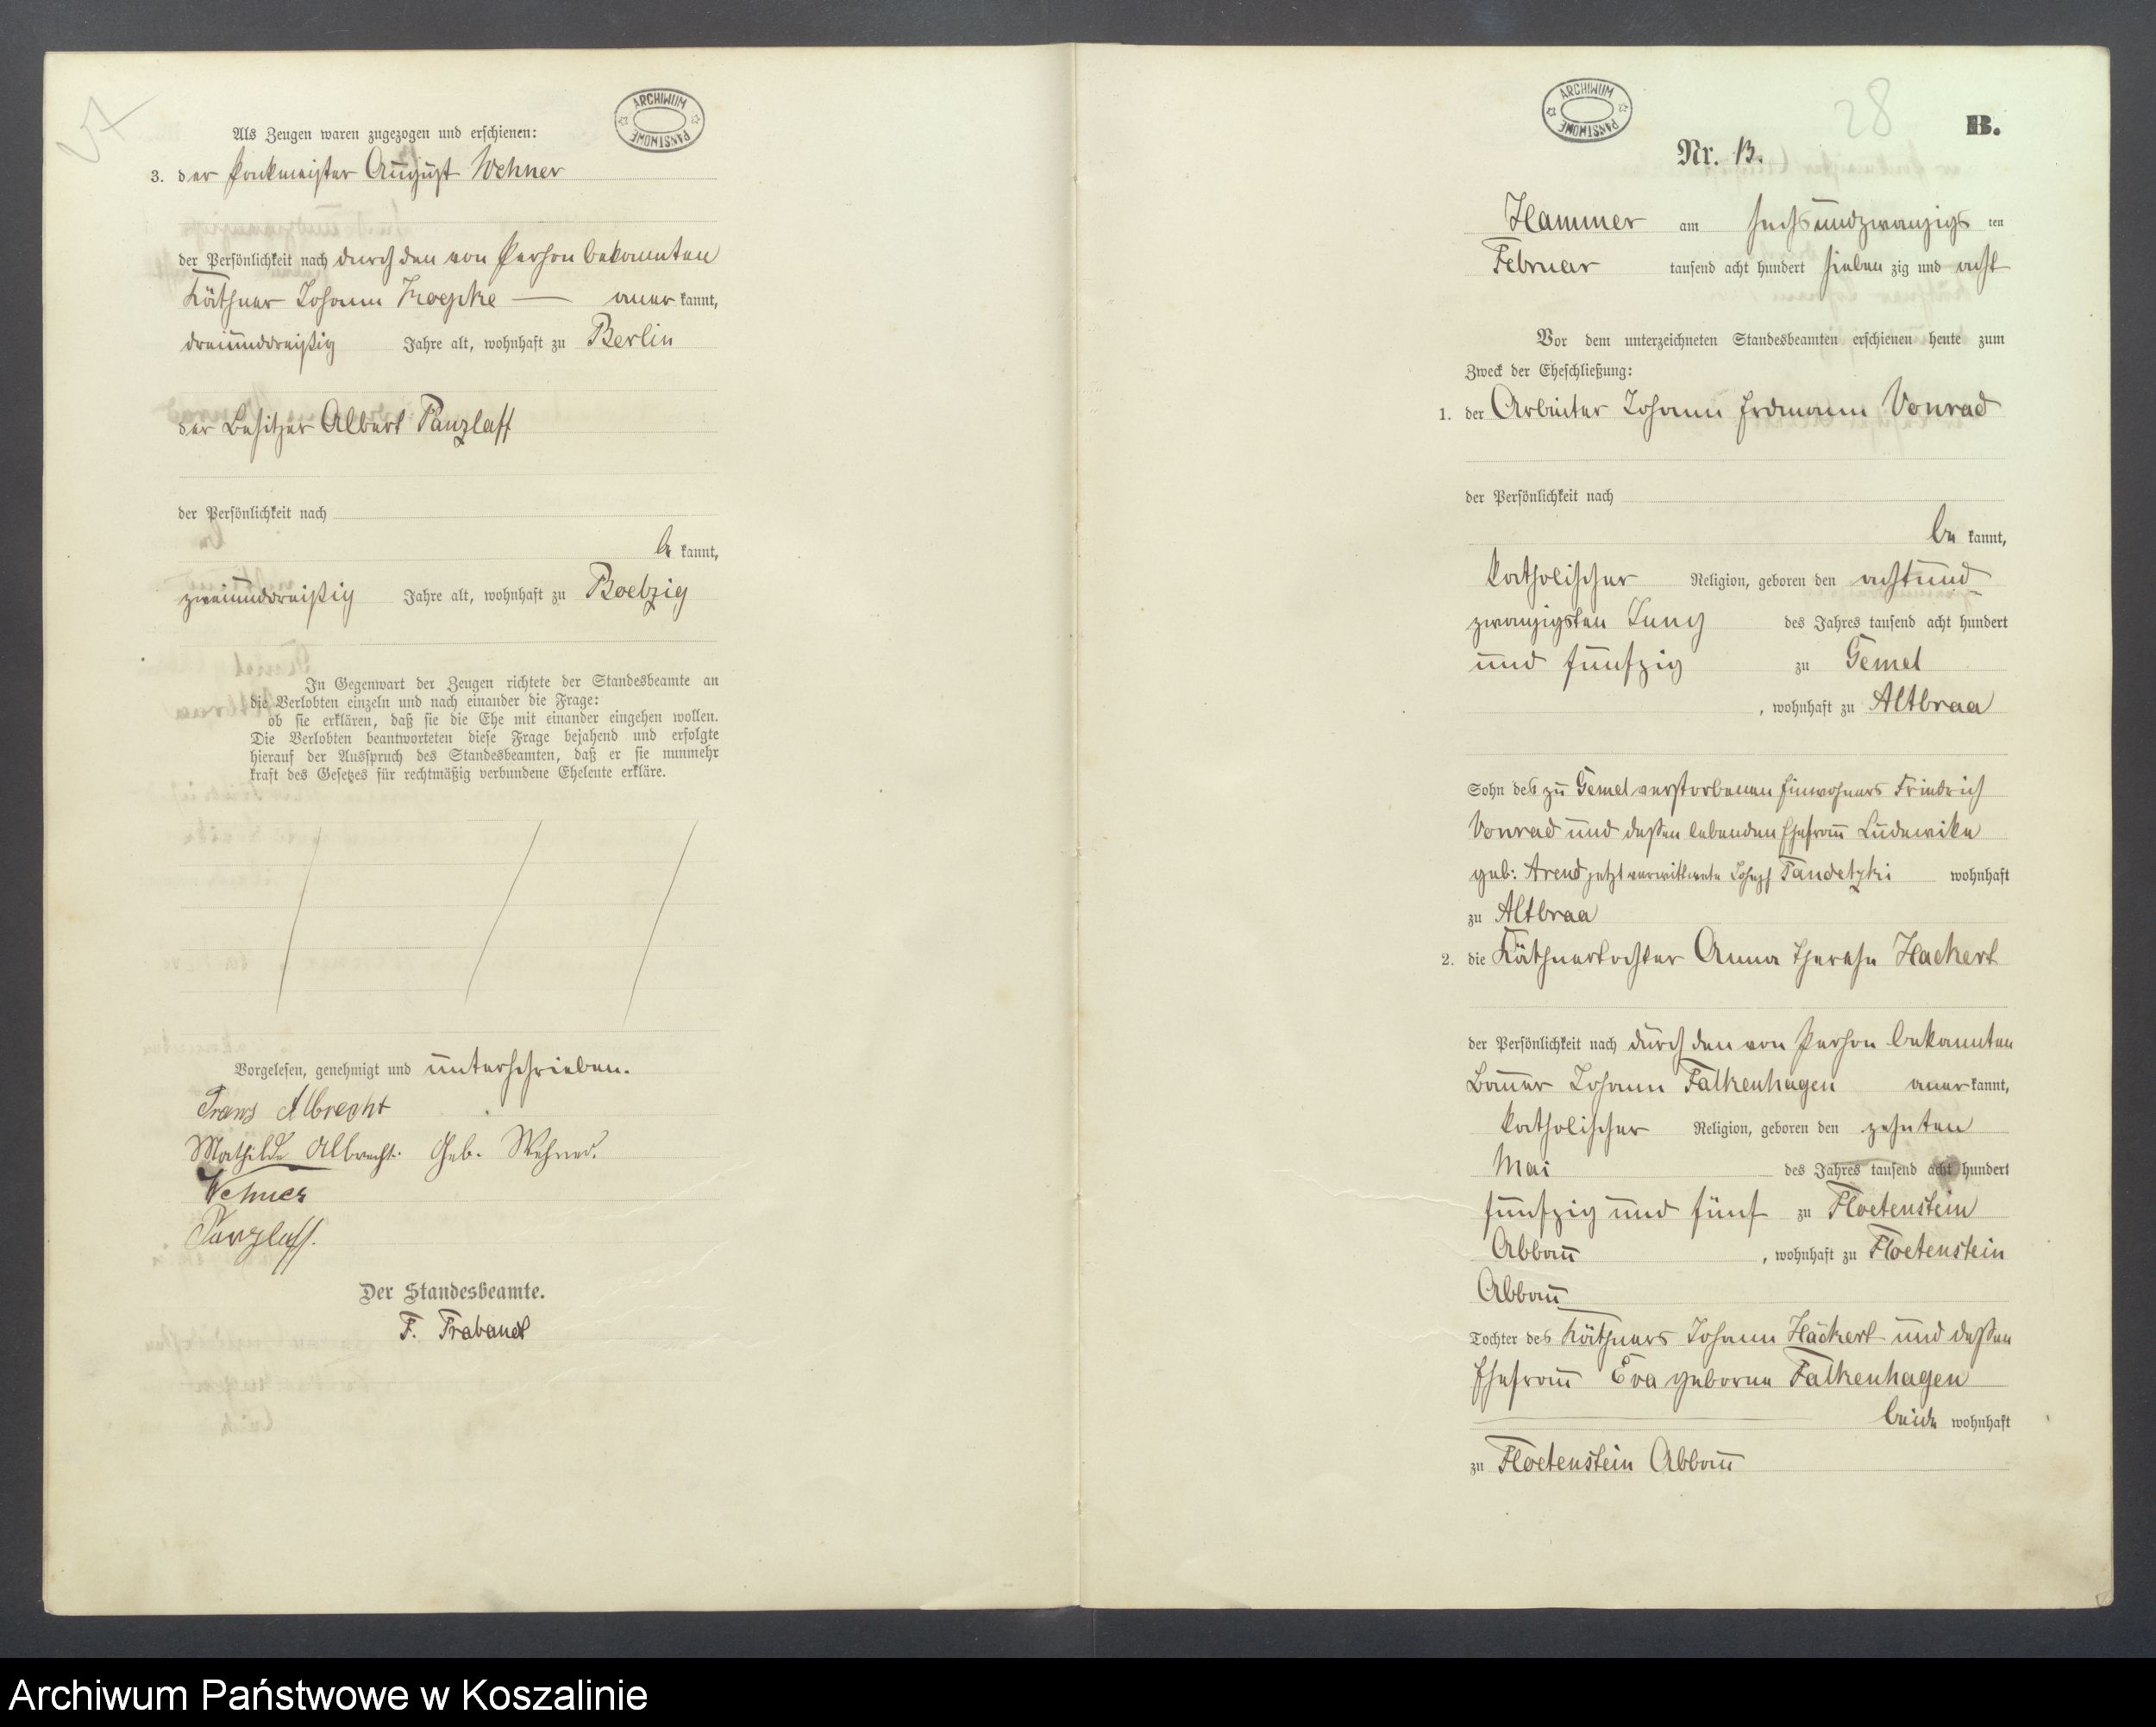 Als Zeugen waren zugezogen und erschienen:
3. der Packmeister August Wehner
der Persönlichkeit nach durch den von Person bekannten
Käthner Johann Koepke — aner kannt,
dreiunddreißig Jahre alt, wohnhaft zu Berlin
der Besitzer Albert Panzlaff
der Persönlichkeit nach
be kannt,
zweiunddreißig Jahre alt, wohnhaft zu Boelzig
In Gegenwart der Zeugen richtete der Standesbeamte an
die Verlobten einzeln und nach einander die Frage:
ob sie erklären, daß sie die Ehe mit einander eingehen wollen.
Die Verlobten beantworteten diese Frage bejahend und erfolgte
hierauf der Ausspruch des Standesbeamten, daß er sie nunmehr
kraft des Gesetzes für rechtmäßig verbundene Eheleute erkläre.
Vorgelesen, genehmigt und unterschrieben.
Franz Albrecht
Mathilde Albrecht. Geb. Wehner.
Wehner
Panzlaff.
Der Standesbeamte.
F. Trabandt
ARCHIWUM PAŃSTWOWE
ARCHIWUM PAŃSTWOWE
28
B.
Nr. 13.
Hammer am sechsundzwanzigs ten
Februar tausend acht hundert sieben zig und acht
Vor dem unterzeichneten Standesbeamten erschienen heute zum
Zweck der Eheschließung:
1. der Arbeiter Johann Erdmann Vonrad
der Persönlichkeit nach
be kannt,
katholischer Religion, geboren den achtund
zwanzigsten Juny des Jahres tausend acht hundert
und fünfzig zu Gemel
, wohnhaft zu Altbraa
Sohn des zu Gemel verstorbenen Einwohners Friedrich
Vonrad und deßen lebenden Ehefrau Ludewike
geb: Arend jetzt verwittwete Joseph Tandetzki wohnhaft
zu Altbraa
2. die Käthnertochter Anna Therese Hackert
der Persönlichkeit nach durch den von Person bekannten
Bauer Johann Falkenhagen aner kannt,
katholischer Religion, geboren den zehnten
Mai des Jahres tausend acht hundert
fünfzig und fünf zu Floetenstein
Abbau , wohnhaft zu Floetenstein
Abbau
Tochter des Käthners Johann Hackert und deßen
Ehefrau Eva geborne Falkenhagen
beide wohnhaft
zu Floetenstein Abbau
Archiwum Państwowe w Koszalinie